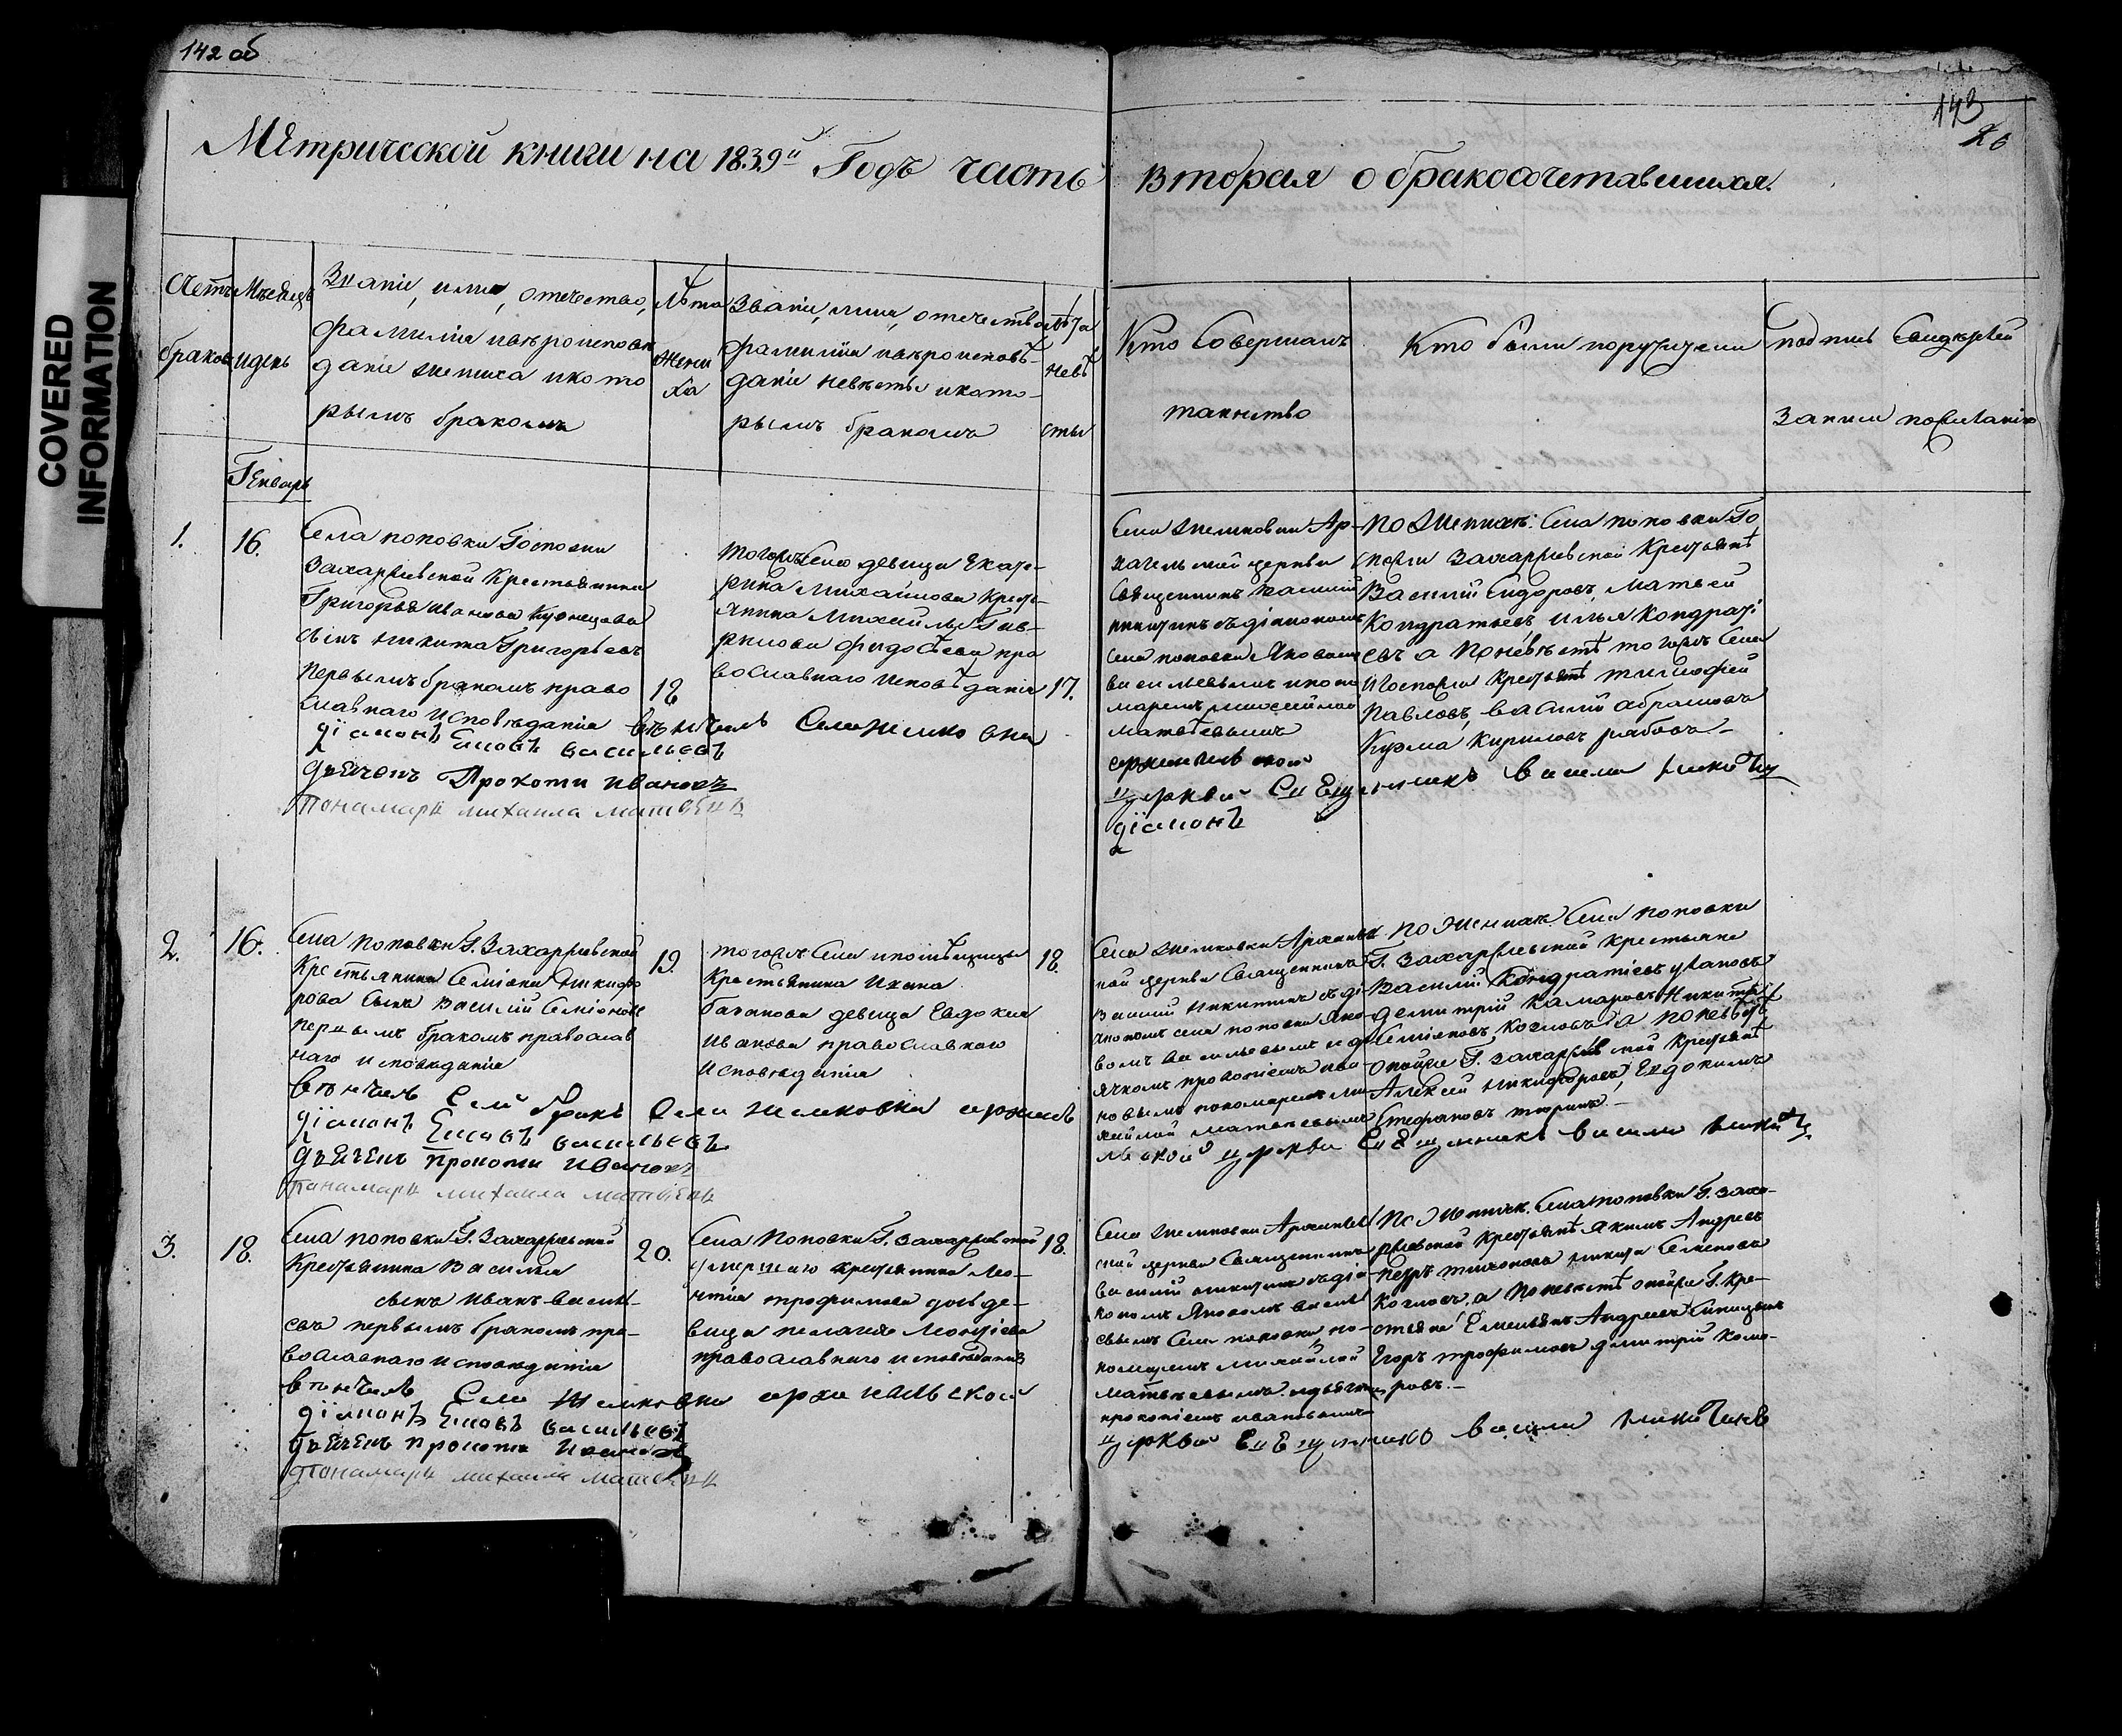 142 об
143
26
COVERED
INFORMATION
Метрической книги на 1839й Годъ часть
вторая о бракосочетавшихся.
Счетъ
браковъ
Мѣсяцъ
и день
Званіе, имя, отечество,
фамиліи и вѣроисповѣ
даніе жениха и кото
рымъ бракомъ
Лѣта
жени
ха
Званіе, имя, отечество
фамиліи и вѣроисповѣ-
даніе невѣсты и кото-
рымъ бракомъ
лѣта
невѣ
сты
Кто Совершалъ
таинство
Кто были поручители
подпись Свидѣтелей
записи по желанію
Генварь
1.
16.
Села поповки Госпожи
Захарьевской Крестьянина
Григорья Иванова Кузнецова
сынъ Никита Григорьевъ
первымъ бракомъ право
славнаго исповѣданія
18
тогожъ села девица Екате-
рина Михайлова Кресть-
янина Михайлы Гав-
рилова Федосѣева пра
вославнаго исповѣданія
17.
Села Жемковки Ар-
хангельской церкви
Священникъ василій
никитинъ съ діакономъ
села поповки Яковомъ
васильевымъ и поно
маремъ михайлой
матвѣевымъ
По женихѣ: Села поповки Го
спожи Захарьевской Крестьянѣ
Василий Сидоровъ, Матвей
Кондратьевъ илья Кондрати
евъ а По невѣстѣ тогожъ Села
и Госпожи Крестьянѣ тимофей
Павловъ, василий абрамовъ
Кузма Кириловъ рябовъ-
венчалъ Села жемковки
архангельской
церкви Священникъ василий никитин
діаконъ Яковъ васильевъ
дьячекъ Прокопи ивановъ
Понамарь михаила матвѣевъ
діаконъ
2.
16.
Села поповки Г. Захарьевской
Крестьянина Семіона Никифо
рова сынъ Василий Семіоновъ
первымъ бракомъ православ
наго исповѣданія
19.
тогожъ Села и помѣщицы
Крестьянина Ивана
баганова девица Евдокия
Иванова православнаго
исповѣданія
18.
Села жемковки Архангель
ской церкви Священникъ
Василий Никитинъ съ ді-
якономъ села поповки Яко-
вомъ васильевымъ и дь
ячкомъ прокопіемъ ива-
новымъ пономаремъ ми
хайлой матвѣевымъ
По женихѣ Села поповки
Г. Захарьевской Крестьяне
Василий Кондратіевъ улановъ
демитрій Камаровъ Никита
Семіоновъ, Козловъ, а по невѣстѣ
онойже Г. Захарьевской Крестьянѣ
Алексей Никифоровъ, Евдокимъ
Стефановъ тюринъ.-
венчалъ Сей бракъ Села жемковки архангель
ской церкви Священникъ василий никитин
діаконъ Яковъ васильевъ
дьячекъ прокопи ивановъ
понамарь михаила матвѣевъ
3.
18.
Села поповки Г. Захарьевской
Крестьянина Василья
сынъ Иванъ Василь-
евъ первымъ бракомъ пра-
вославнаго исповѣданія
20.
Села Поповки Г. Захарьевской
умершаго крестьянина Лео-
нтія трофимова дочь де-
вица пелагея Леонтіева
православнаго исповѣданія
18.
Села жемковки Архангель
ской церкви Священникъ
василий никитинъ съ діа-
кономъ Яковомъ василь
евымъ Села поповки, по-
номаремъ михайлой
матвѣевымъ и дьячкомъ
прокопіемъ ивановымъ
По женихѣ. Села поповки Г. Заха-
рьевской Крестьянѣ Якимъ Андреевъ
Петръ тихоновъ никита Семеновъ
Козловъ, а По невѣстѣ онойже Г. Кре-
стьяне Емельянъ Андреевъ Синицынъ
Егоръ трофимовъ дмитрій Кома-
ровъ.-
венчалъ Села Жемковки архангельской
церкви Священникъ василий никитинъ
діаконъ Яковъ васильевъ
дьячекъ прокопи ивановъ
понамарь михаила матвѣевъ